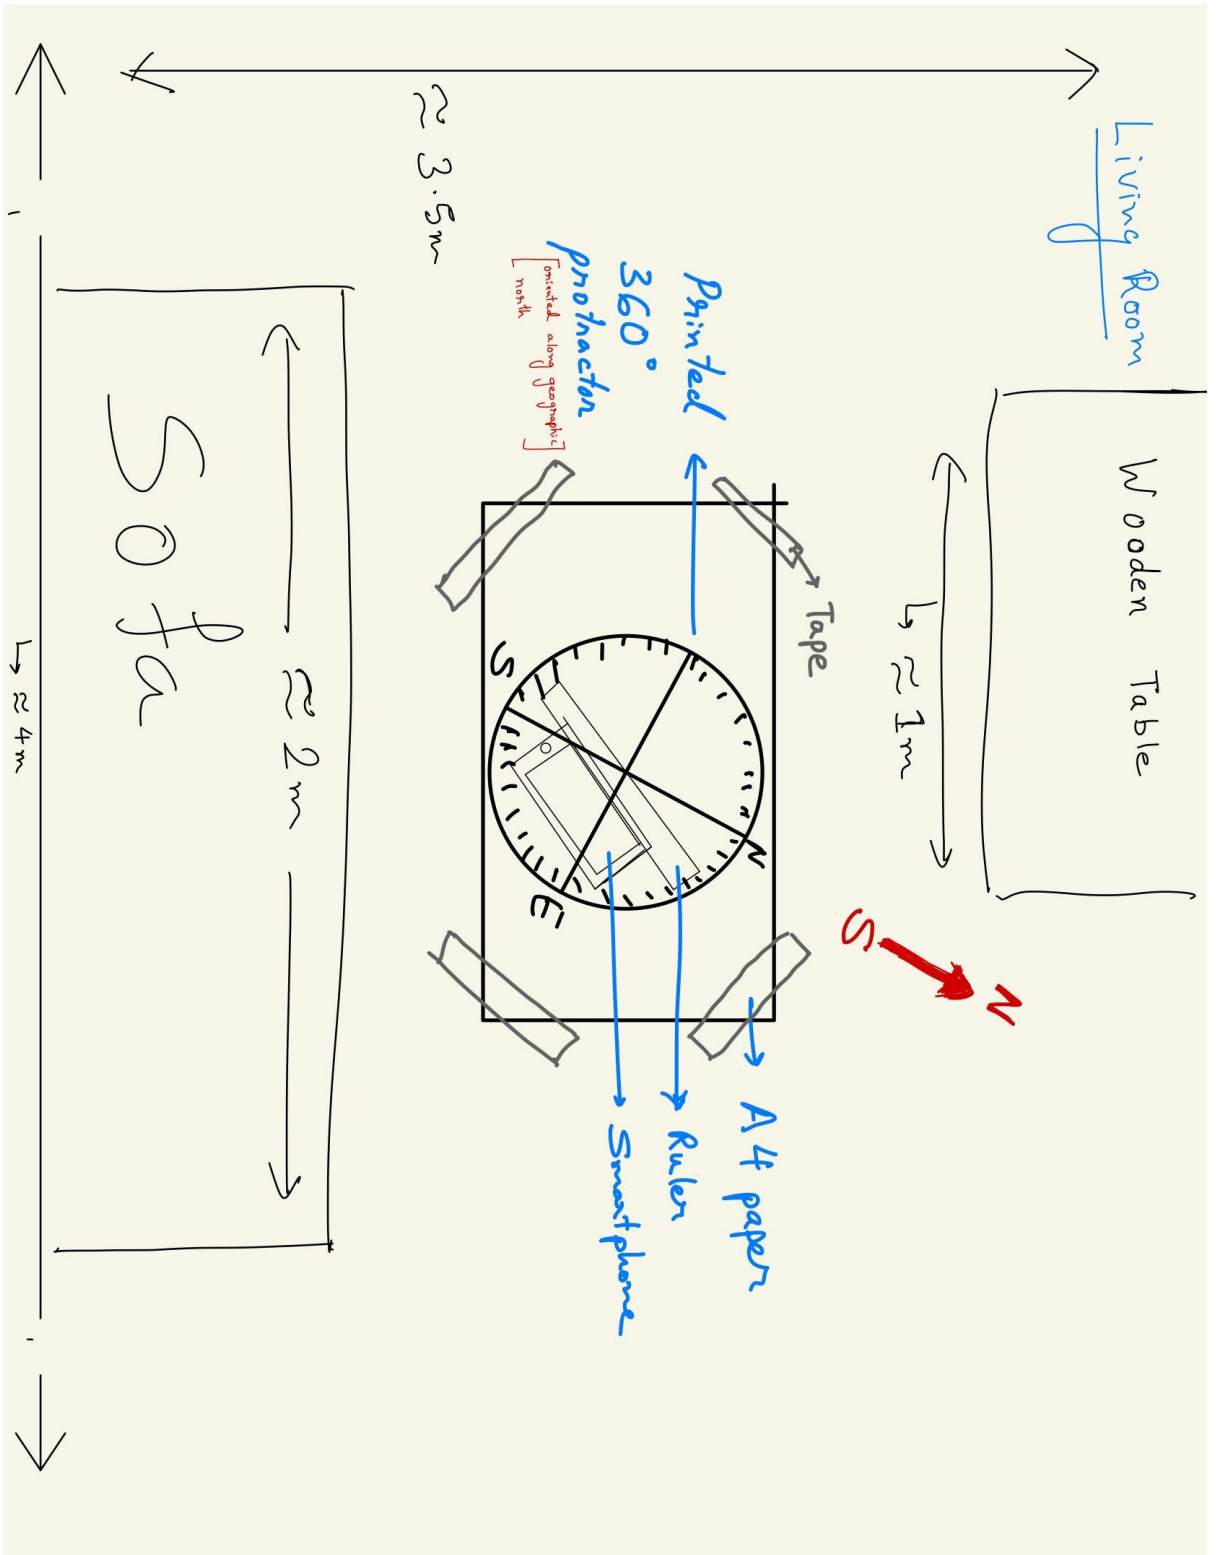 Living Room
≈ 3.5m
Wooden Table
↳ ≈ 1m
Printed
360°
protractor
[oriented along geographic
north]
Tape
S
N
E
S
N
A4 paper
Ruler
Smartphone
≈ 2m
Sofa
↳ ≈ 4m